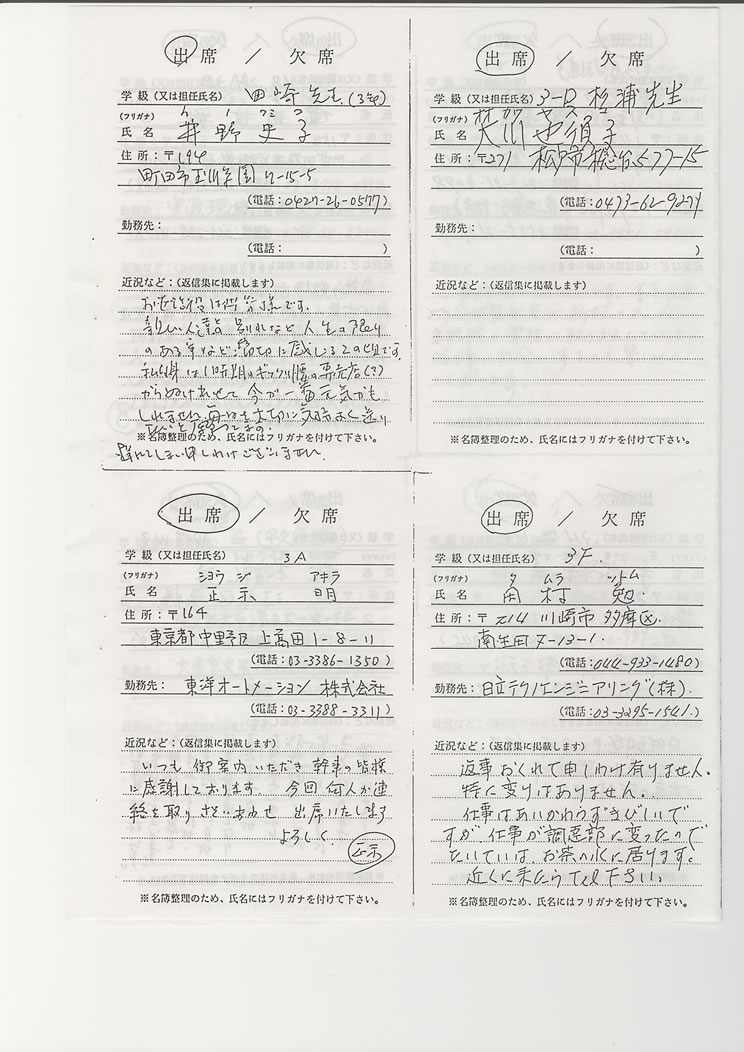 出 席 ／ 欠 席
学 級 (又は担任氏名) 田崎先生(3年)
(フリガナ) イ ノ フミ コ
氏 名 井 野 史 子
住 所：〒194
町田市玉川学園 7-15-5
(電話：0427-26-0577)
勤務先：
(電話： )
近況など：(返信集に掲載します)
お世話役は何等様です。
親しい人達との別れなど人生の
のある年など 切に感じるこの頃です。
私自身は ギックリ腰の専売店(?)
からぬけ出せて 今が一番元気かも
しれません。毎日を大切に気持よく送り
※名簿整理のため、氏名にはフリガナを付けて下さい。
遅れてしまい申しわけございません。
出 席 ／ 欠 席
学 級 (又は担任氏名) 3-D 杉浦先生
(フリガナ)
氏 名 大川 子
住 所：〒271 松戸市 577-15
(電話：0473-62-9271
勤務先：
(電話： )
近況など：(返信集に掲載します)
※名簿整理のため、氏名にはフリガナを付けて下さい。
出 席 ／ 欠 席
学 級 (又は担任氏名) 3A
(フリガナ) ショウ ジ アキラ
氏 名 正 示 明
住 所：〒164
東京都 中野区 上高田 1-8-11
(電話：03-3386-1350)
勤務先： 東洋オートメーション 株式会社
(電話：03-3388-3311)
近況など：(返信集に掲載します)
いつも 御案内 いただき 幹事の皆様
に感謝しております。 今回 何人か連
絡を取り さそいあわせ 出席いたします
よろしく
正示
※名簿整理のため、氏名にはフリガナを付けて下さい。
出 席 ／ 欠 席
学 級 (又は担任氏名) 3F.
(フリガナ) タ ムラ ツトム
氏 名 田 村 勉
住 所：〒214 川崎市 多摩区.
南生田 7-13-1.
(電話：044-933-1480)
勤務先：日立テクノエンジニアリング(株).
(電話：03-3295-1541.)
近況など：(返信集に掲載します)
返事 おくれて申しわけ有りません.
特に変りはありません。
仕事はあいかわらずきびしいで
すが、仕事が調達部に変ったので
たいていは、お茶の水に居ります。
近くに来たら Tel 下さい。
※名簿整理のため、氏名にはフリガナを付けて下さい。